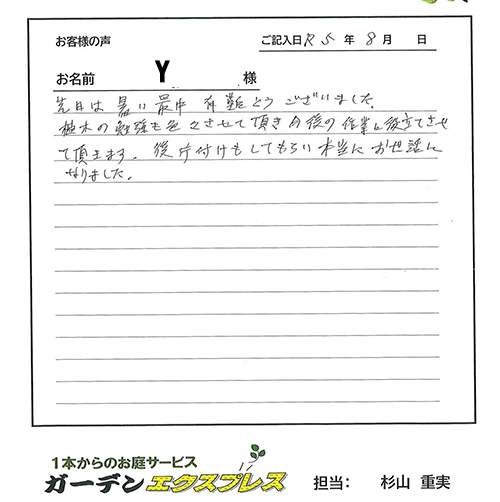 お客様の声 ご記入日 R5 年 8 月 日
お名前 Y 様
先日は暑い最中有難とうございました。
植木の勉強も色々させて頂き今後の作業に役立てさせ
て頂きます。後片付けもしてもらい本当にお世話に
なりました。
1本からのお庭サービス
ガーデンエクスプレス 担当: 杉山 重実